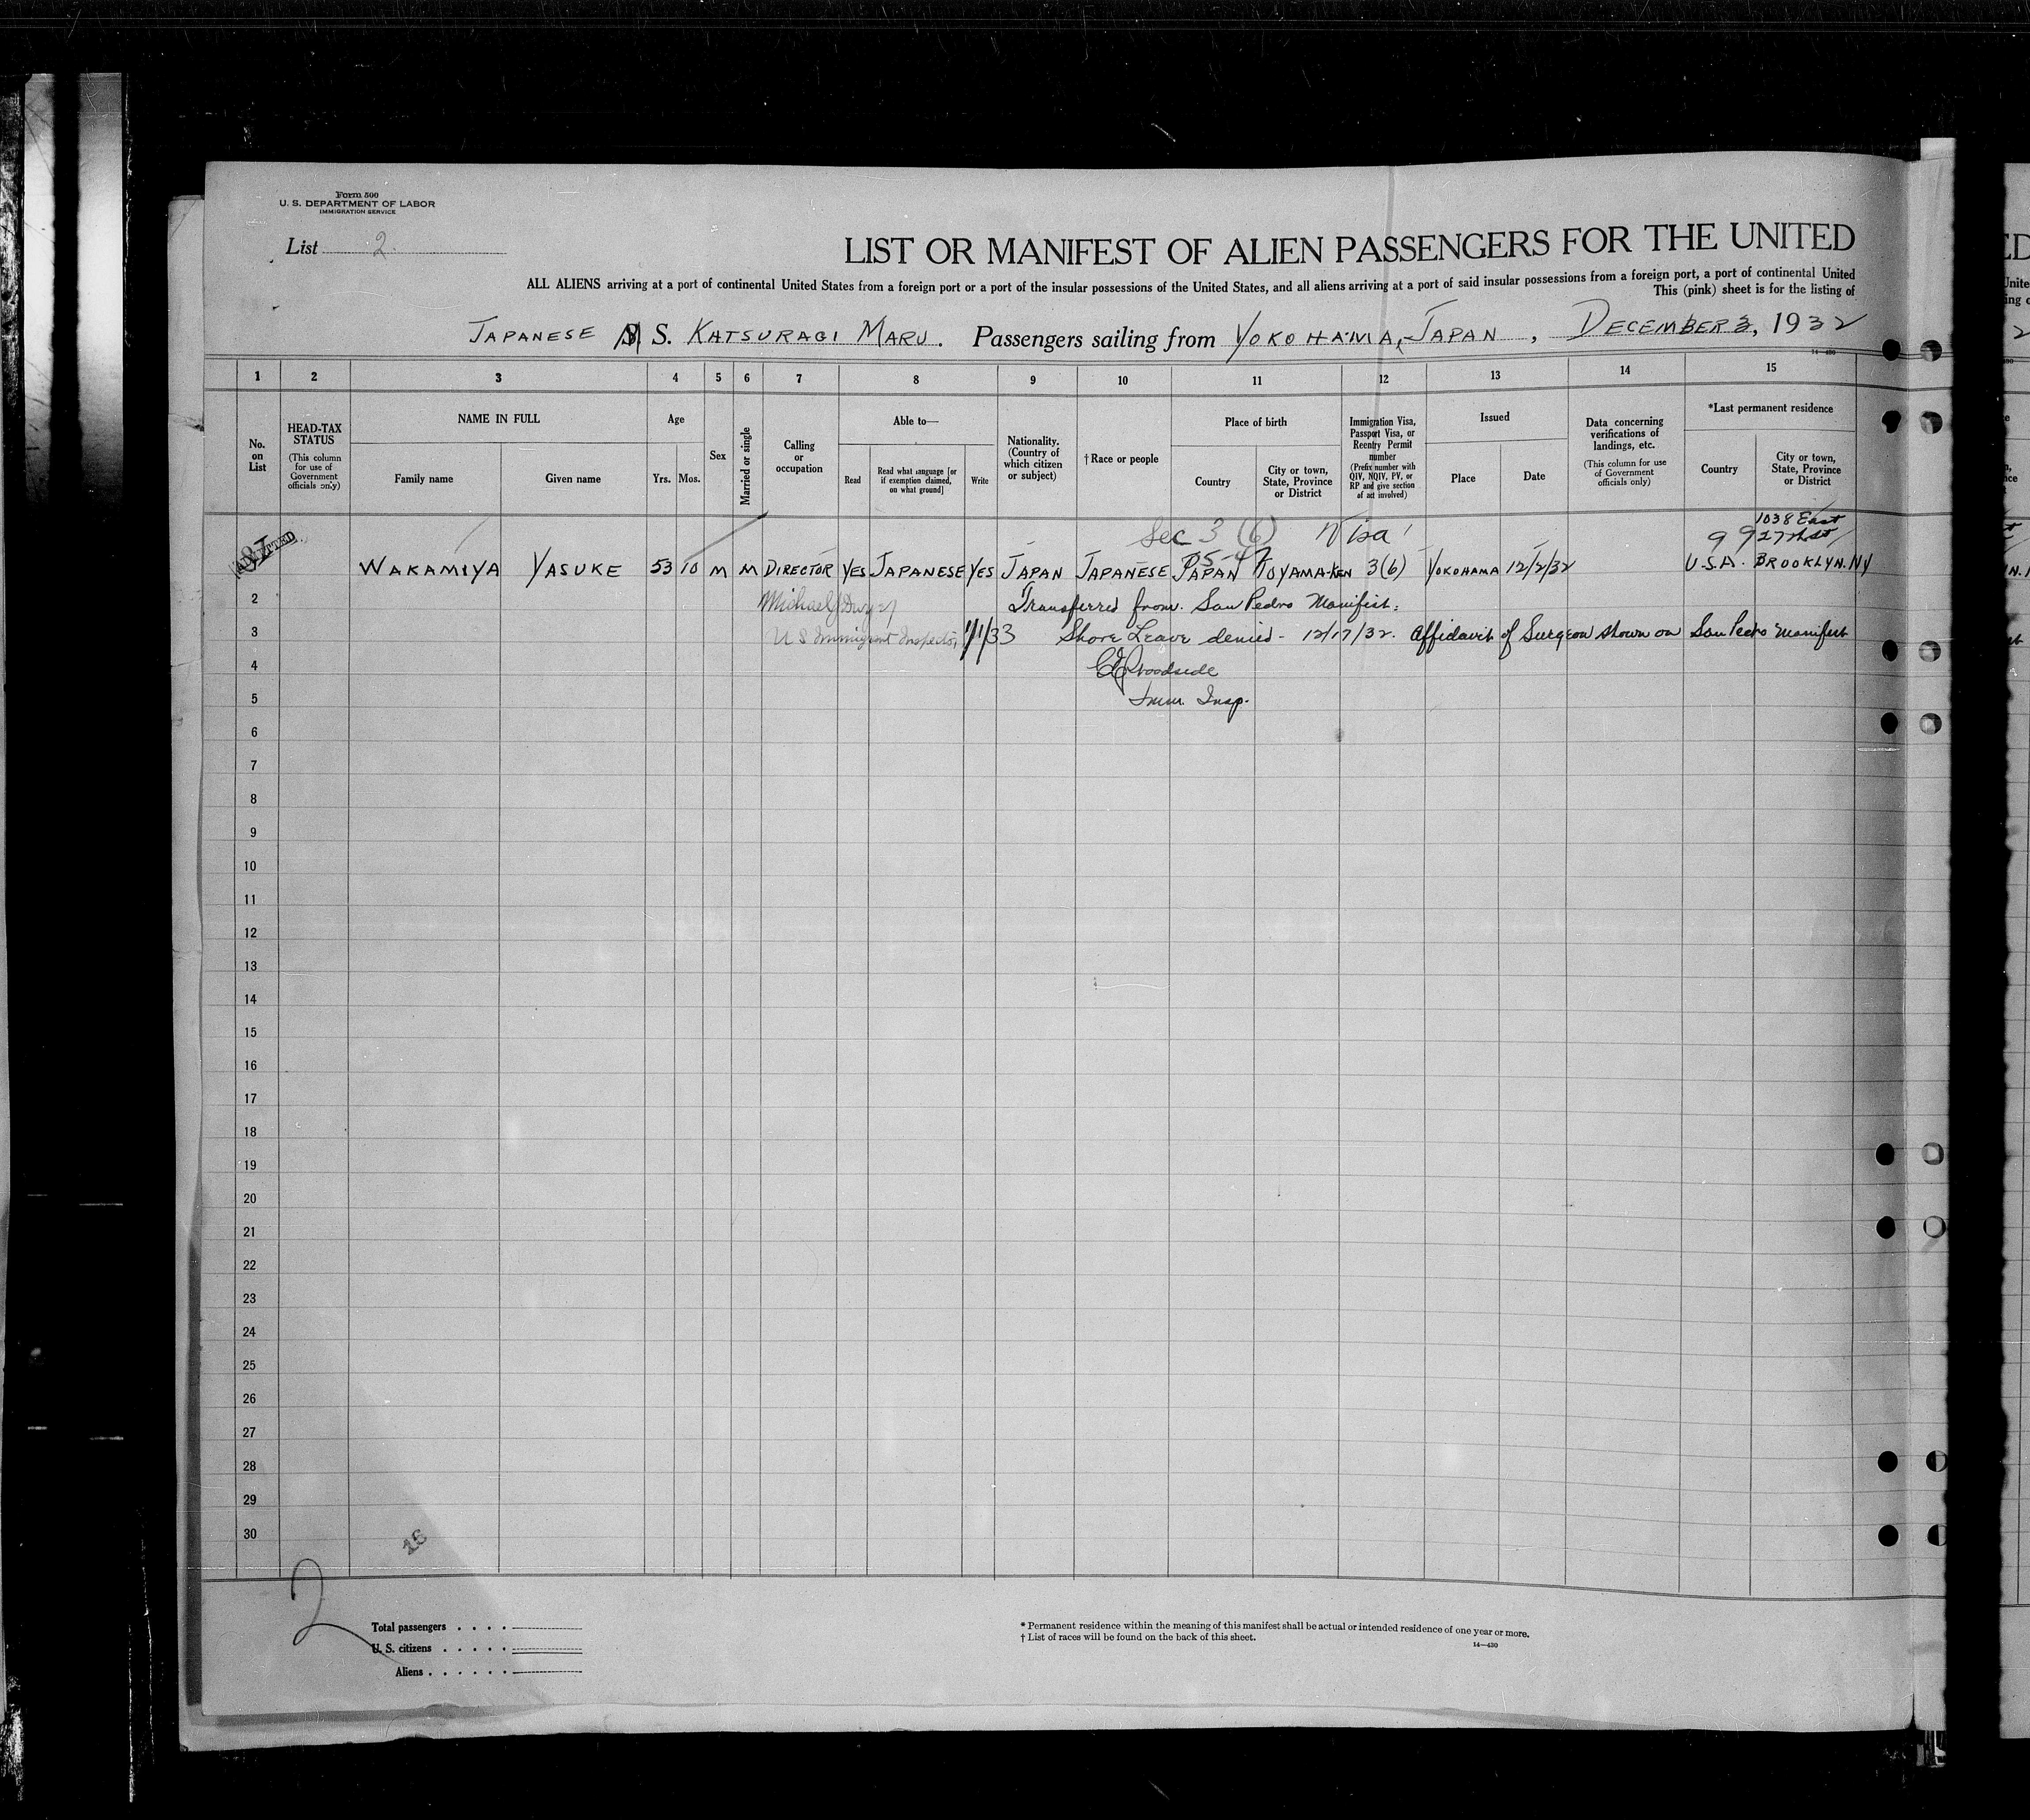 Form 500
U. S. DEPARTMENT OF LABOR
IMMIGRATION SERVICE
List 2
LIST OR MANIFEST OF ALIEN PASSENGERS FOR THE UNITED
ALL ALIENS arriving at a port of continental United States from a foreign port or a port of the insular possessions of the United States, and all aliens arriving at a port of said insular possessions from a foreign port, a port of continental United
This (pink) sheet is for the listing of
JAPANESE S. KATSURAGI MARU. Passengers sailing from YOKOHAMA, JAPAN, DECEMBER 3, 1932
14—430
1 2 3 4 5 6 7 8 9 10 11 12 13 14 15
No. on List
HEAD-TAX STATUS
(This column for use of Government officials only)
NAME IN FULL
Family name
Given name
Age
Yrs. Mos.
Sex
Married or single
Calling or occupation
Able to—
Read
Read what language [or if exemption claimed, on what ground]
Write
Nationality. (Country of which citizen or subject)
†Race or people
Place of birth
Country
City or town, State, Province or District
Immigration Visa, Passport Visa, or Reentry Permit number
(Prefix number with QIV, NQIV, PV, or RP and give section of act involved)
Issued
Place
Date
Data concerning verifications of landings, etc.
(This column for use of Government officials only)
*Last permanent residence
Country
City or town, State, Province or District
Sec 3 (6) Visa
1038 East
99 27th St
ADMITTED
WAKAMIYA YASUKE 53 10 M M DIRECTOR YES JAPANESE YES JAPAN JAPANESE JAPAN TOYAMA-KEN 3(6) YOKOHAMA 12/2/32 U.S.A. BROOKLYN. NY
2 Michael J Dwyer Transferred from San Pedro Manifest.
3 U S Immigrant Inspector, 1/1/33 Shore Leave denied - 12/17/32. Affidavit of Surgeon shown on San Pedro Manifest
4 Woodside
5 Imm. Insp.
6
7
8
9
10
11
12
13
14
15
16
17
18
19
20
21
22
23
24
25
26
27
28
29
30
16
2
Total passengers
U. S. citizens
Aliens
* Permanent residence within the meaning of this manifest shall be actual or intended residence of one year or more.
† List of races will be found on the back of this sheet.
14—430